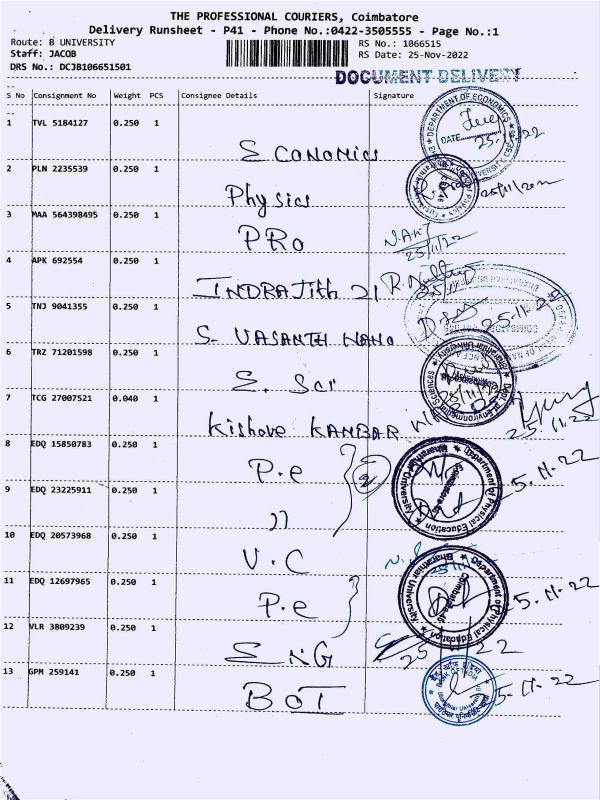 THE PROFESSIONAL COURIERS, Coimbatore
Delivery Runsheet - P41 - Phone No.:0422-3505555 - Page No.:1
Route: B UNIVERSITY
RS No.: 1066515
Staff: JACOB
RS Date: 25-Nov-2022
DRS No.: DCJB106651501
DOCUMENT DELIVERY
S No Consignment No Weight PCS Consignee Details Signature
1 TVL 5184127 0.250 1
DEPARTMENT OF ECONOMICS
DATE
25.11.22
Economics
2 PLN 2235539 0.250 1
25/11/2022
Physics
3 MAA 564398495 0.250 1
PRO
25/11/22
4 APK 692554 0.250 1
INDRAJith 21
5 TNJ 9041355 0.250 1
25.11.22
S. VASANTH NANO
6 TRZ 71201598 0.250 1
Dept. of Environmental Sciences
Bharathiar University
E. Sci
7 TCG 27007521 0.040 1
25.11.22
Kishore KANBAR
8 EDQ 15850783 0.250 1
P.e
2
Department of Physical Education
Bharathiar University
Coimbatore-46
25.11.22
9 EDQ 23225911 0.250 1
"
10 EDQ 20573968 0.250 1
V.C
11 EDQ 12697965 0.250 1
P.e
Department of Physical Education
Bharathiar University
Coimbatore-46
25.11.22
12 VLR 3809239 0.250 1
ENG
25 11 22
13 GPM 259141 0.250 1
BOT
BANK OF INDIA
25.11.22